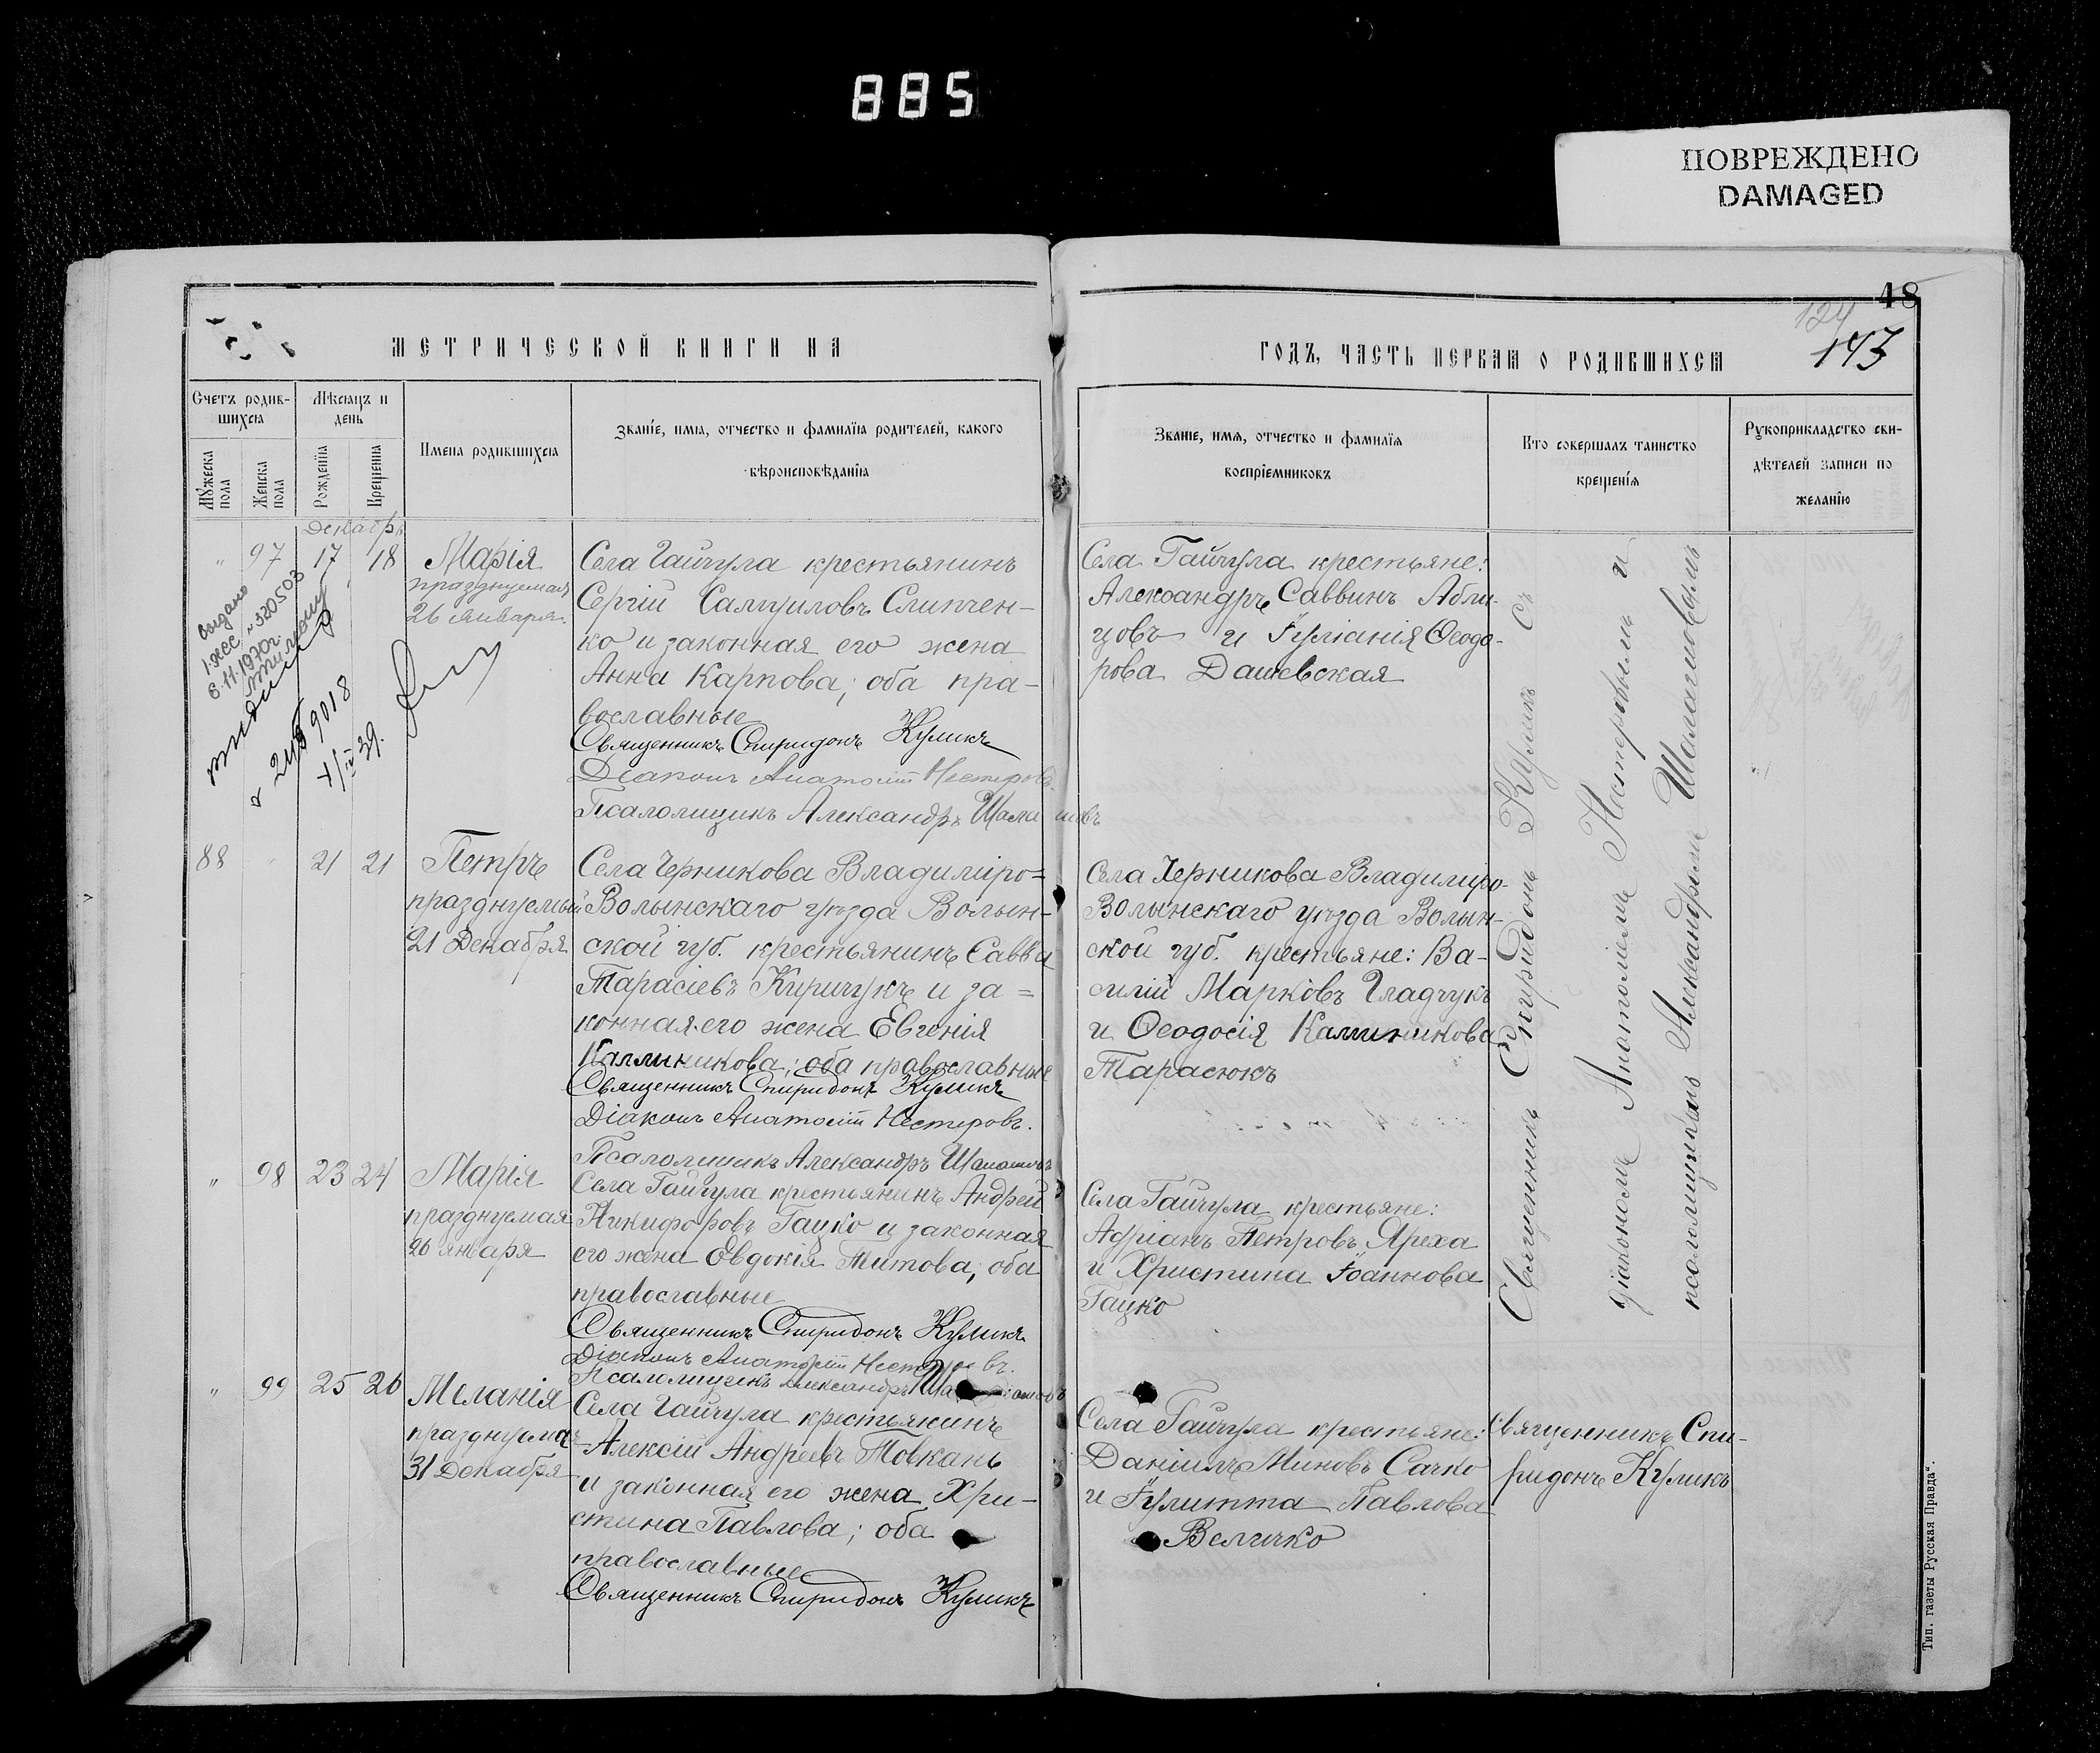 885
ПОВРЕЖДЕНО
DAMAGED
48
124
143
МЕТРИЧЕСКОЙ КНИГИ НА
ГОДЪ, ЧАСТЬ ПЕРВАЯ О РОДИВШИХСЯ
Счетъ родив-
шихся
Мѣсяцъ и
день
Мужеска
пола
Женска
пола
Рожденія
Крещенія
Имена родившихся
Званіе, имя, отчество и фамилія родителей, какого
вѣроисповѣданія
Званіе, имя, отчество и фамилія
воспріемниковъ
Кто совершалъ таинство
крещенія
Рукоприкладство сви-
дѣтелей записи по
желанію
Декабрь
" 97 17 18
Марія
празднуемая
26 Января.
выдано
№ 320503
6.11.1970г.
9018
39.
Села Гайчула крестьянинъ
Сергій Самуиловъ Слипчен-
ко и законная его жена
Анна Карпова; оба пра-
вославные
Священникъ Спиридонъ Куликъ
Діаконъ Анатолій Нестеровъ.
Псаломщикъ Александръ
Села Гайчула крестьяне:
Александръ Саввинъ Абли-
цовъ и Іуліанія Ѳеодо-
рова Дашевская
88 " 21 21
Петръ
празднуемый
21 Декабря
Села Черникова Владиміро-
Волынскаго уѣзда Волын-
ской губ. крестьянинъ Савва
Тарасіевъ Киричукъ и за-
конная его жена Евгенія
Каллиникова; оба православные
Священникъ Спиридонъ Куликъ
Діаконъ Анатолій Нестеровъ.
Псаломщикъ Александръ
Села Черникова Владиміро-
Волынскаго уѣзда Волын-
ской губ. крестьяне: Ва-
силій Марковъ Гладчукъ
и Ѳеодосія Каллиникова
Тарасюкъ
" 98 23 24
Марія
празднуемая
26 Января
Села Гайчула крестьянинъ Андрей
Никифоровъ Гацко и законная
его жена Евдокія Титова; оба
православные
Священникъ Спиридонъ Куликъ
Діаконъ Анатолій Нестеровъ.
Псаломщикъ Александръ
Села Гайчула крестьяне:
Адріанъ Петровъ Яреха
и Христина Іоаннова
Гацко
Священникъ Спиридонъ Куликъ съ
діакономъ Анатоліемъ Нестеровымъ и
псаломщикомъ Александромъ
" 99 25 26
Меланія
празднуемая
31 Декабря
Села Гайчула крестьянинъ
Алексій Андреевъ Товкань
и законная его жена Хри-
стина Павлова; оба
православные
Священникъ Спиридонъ Куликъ
Села Гайчула крестьяне:
Даніилъ Миновъ Сачко
и Іулитта Павлова
Величко
Священникъ Спи-
ридонъ Куликъ
Тип. газеты Русская Правда".